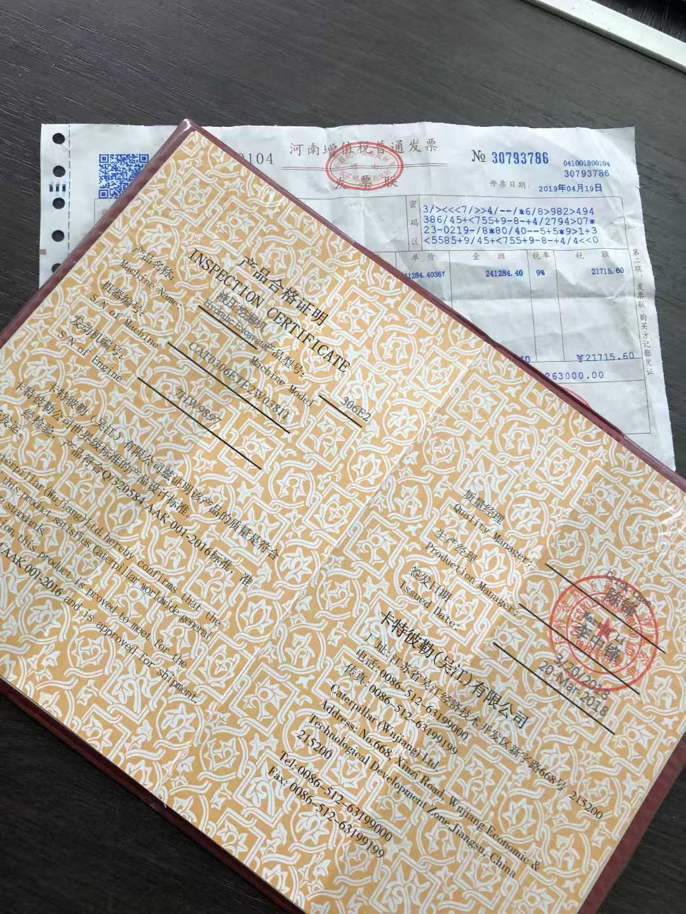 0104
河南增值税普通发票
№ 30793786
041001800104
30793786
发票联
开票日期: 2019年04月19日
密码区
3/><<<7/>>4/--/*6/8>982>494
386/45+<755+9-8-+4/2794>07*
23-0219-/8*80/40--5+5*9>1+3
<5585+9/45+<755+9-8-+4/4<<0
单价
金额
税率
税额
241284.40
9%
21715.60
¥21715.60
263000.00
产品合格证明
INSPECTION CERTIFICATE
产品名称:
Machine Name:
液压挖掘机
产品型号:
Machine Model
306E2
机器编号:
S/N of Machine
发动机编号:
S/N of Engine
卡特彼勒(吴江)有限公司兹证明该产品的质量是符合
卡特彼勒公司世界级标准的产品设计标准。
经检验,产品符合Q/320584 AAK 001-2016标准,准
Caterpillar (Wujiang) Ltd. hereby confirms that the
this product satisfies Caterpillar worldwide general
standard.
this product is proved to meet for the
AAK 001-2016 and is approved for shipment.
质量经理
Quality Manager:
生产经理
Production Manager:
签发日期
Issued Date:
20-Mar-2018
卡特彼勒(吴江)有限公司
厂址:江苏省吴江经济技术开发区新字路668号 215200
电话:0086-512-63199000
传真:0086-512-63199199
Caterpillar (Wujiang) Ltd.
Address: No.668, Xinzi Road, Wujiang Economic &
Technological Development Zone, Jiangsu, China
215200
Tel: 0086-512-63199000
Fax: 0086-512-63199199